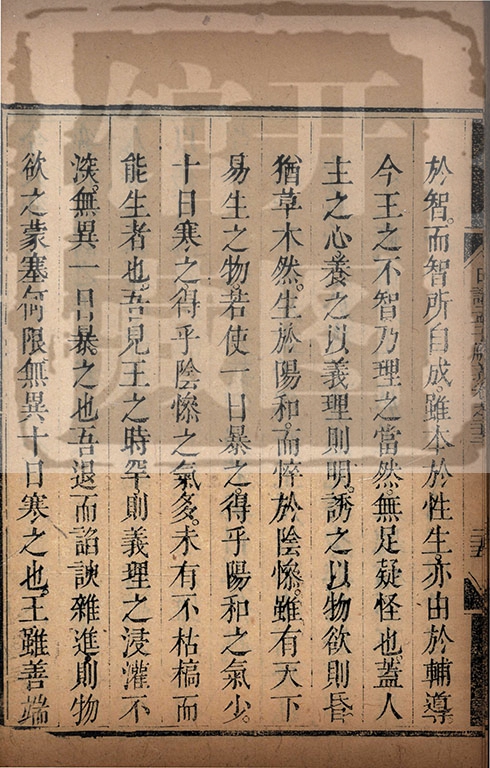 於智。而智所自成。雖本於性生。亦由於輔導
今王之不智乃理之當然。無足疑怪也。蓋人
主之心。養之以義理則明。誘之以物欲則昏
猶草木然。生於陽和。而悴於陰慘。雖有天下
易生之物。若使一日暴之。得乎陽和之氣少。
十日寒之。得乎陰慘之氣多。未有不枯槁而
能生者也。吾見王之時罕則義理之浸灌不
深。無異一日暴之也吾退而諂諛雜進則物
欲之蒙塞何限無異十日寒之也。王雖善端